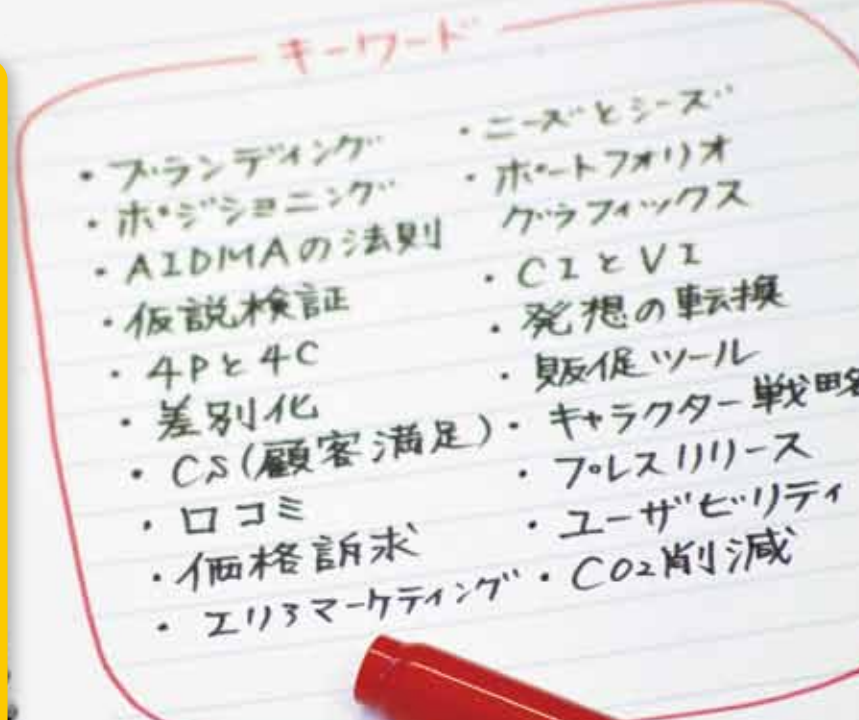 キーワード
・ブランディング
・ポジショニング
・AIDMAの法則
・仮説検証
・4Pと4C
・差別化
・CS(顧客満足)
・口コミ
・価格訴求
・エリアマーケティング
・ニーズとシーズ
・ポートフォリオ
グラフィックス
・CIとVI
・発想の転換
・販促ツール
・キャラクター戦略
・プレスリリース
・ユーザビリティ
・CO2削減